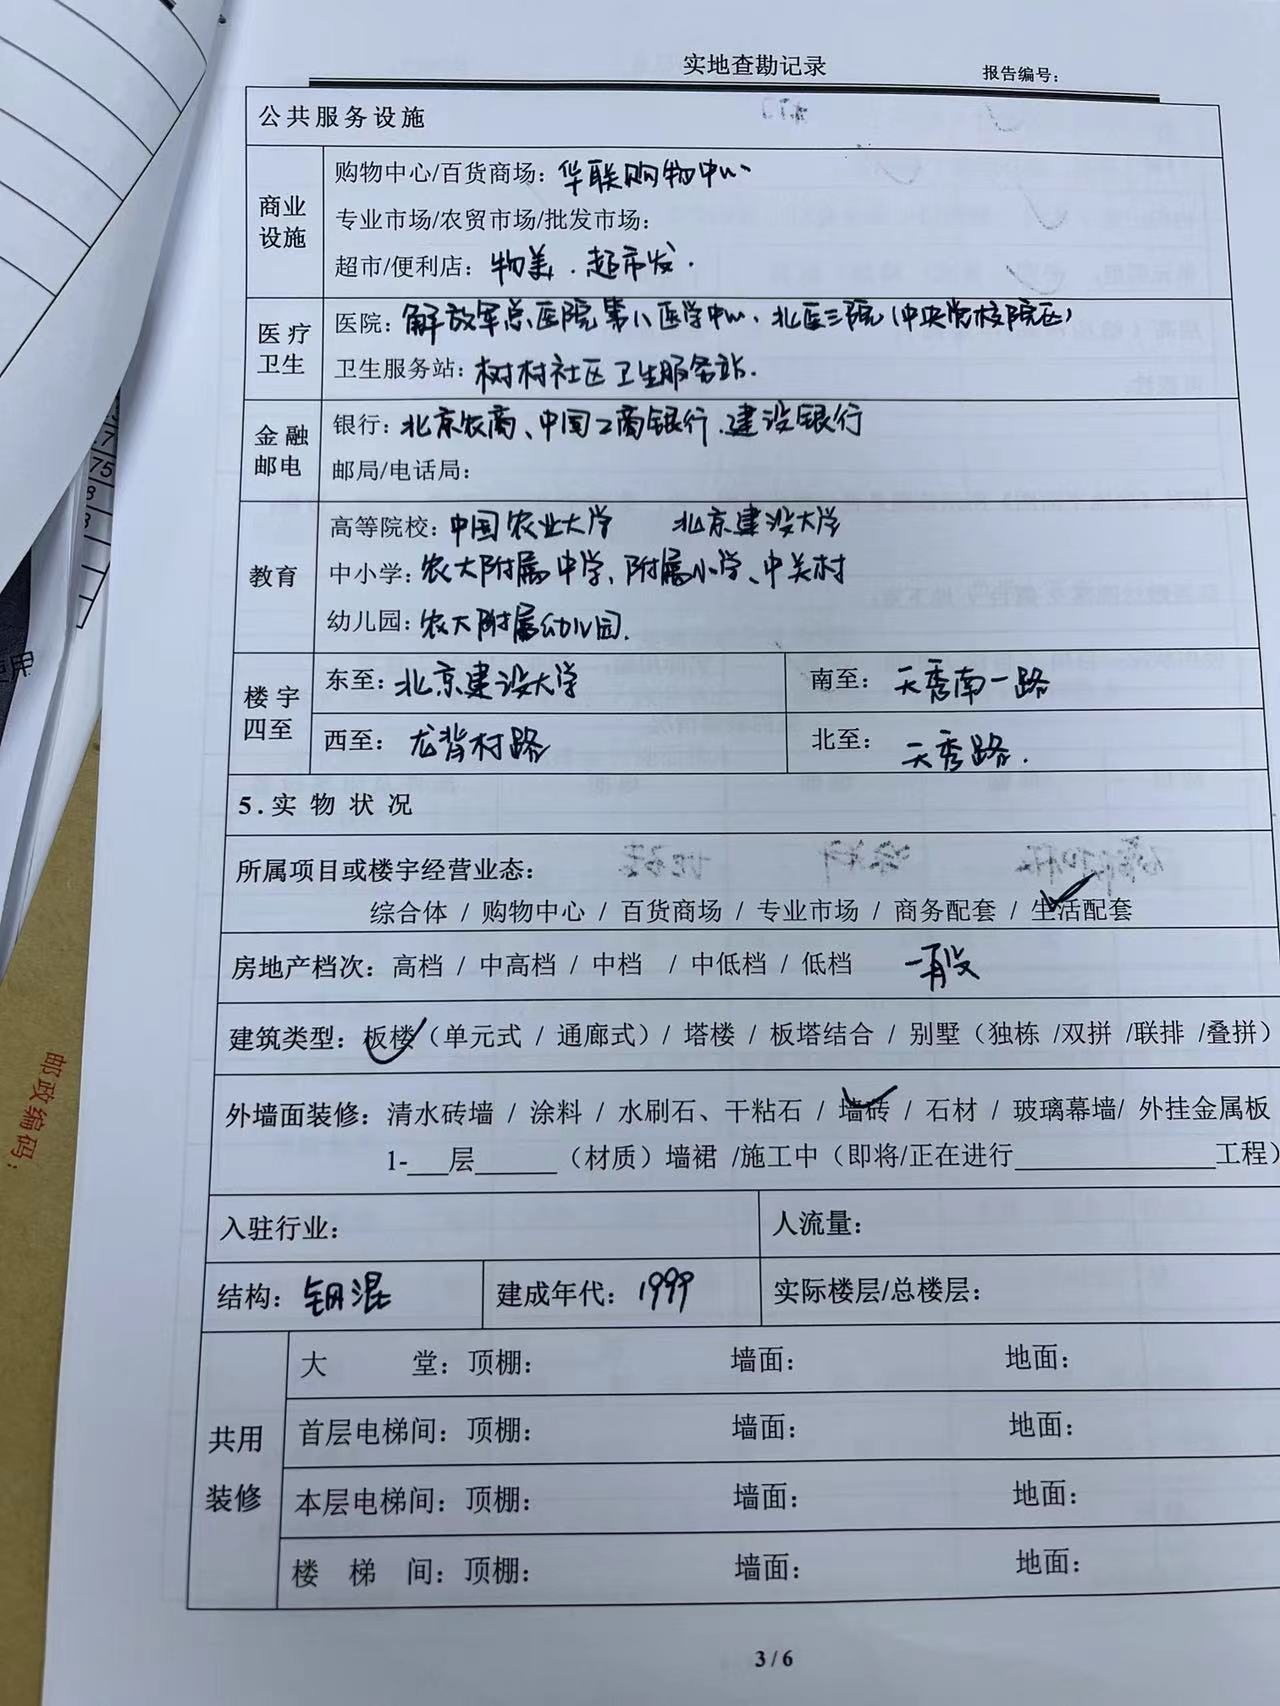 实地查勘记录
报告编号：
公共服务设施
商业设施
购物中心/百货商场：华联购物中心
专业市场/农贸市场/批发市场：
超市/便利店：物美．超市发．
医疗卫生
医院：解放军总医院第八医学中心、北医三院(中央党校院区)
卫生服务站：树村社区卫生服务站.
金融邮电
银行：北京农商、中国工商银行、建设银行
邮局/电话局：
教育
高等院校：中国农业大学 北京建设大学
中小学：农大附属中学、附属小学、中关村
幼儿园：农大附属幼儿园.
楼宇四至
东至：北京建设大学 南至：天秀南一路
西至：龙背村路 北至：天秀路.
5.实物状况
所属项目或楼宇经营业态：
综合体 / 购物中心 / 百货商场 / 专业市场 / 商务配套 / 生活配套
房地产档次：高档 / 中高档 / 中档 / 中低档 / 低档 一般
建筑类型：板楼（单元式 / 通廊式）/ 塔楼 / 板塔结合 / 别墅（独栋 /双拼 /联排 /叠拼）
外墙面装修：清水砖墙 / 涂料 / 水刷石、干粘石 / 墙砖 / 石材 / 玻璃幕墙/ 外挂金属板
1-___层______（材质）墙裙 /施工中（即将/正在进行_______________工程）
入驻行业： 人流量：
结构：钢混 建成年代：1999 实际楼层/总楼层：
共用装修
大 堂：顶棚： 墙面： 地面：
首层电梯间：顶棚： 墙面： 地面：
本层电梯间：顶棚： 墙面： 地面：
楼 梯 间：顶棚： 墙面： 地面：
3 / 6
邮政编码：
75